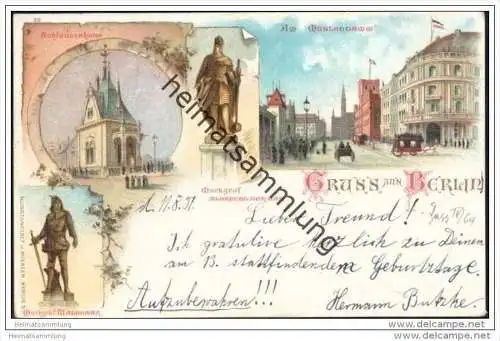 Schleusenhaus
Am Mühlendamm
Markgraf
Gruss aus Berlin
d. 11.8.97.
Lieber Freund!
Ich gratulire herzlich zu Deinem
am 13. stattfindenden Geburtstage.
Aufzubewahren!!!
Hermann Butzke.
Markgraf Waldemar
heimatsammlung.de
Heimatsammlung
Heimatsammlung.de
http://www.delcampe.net